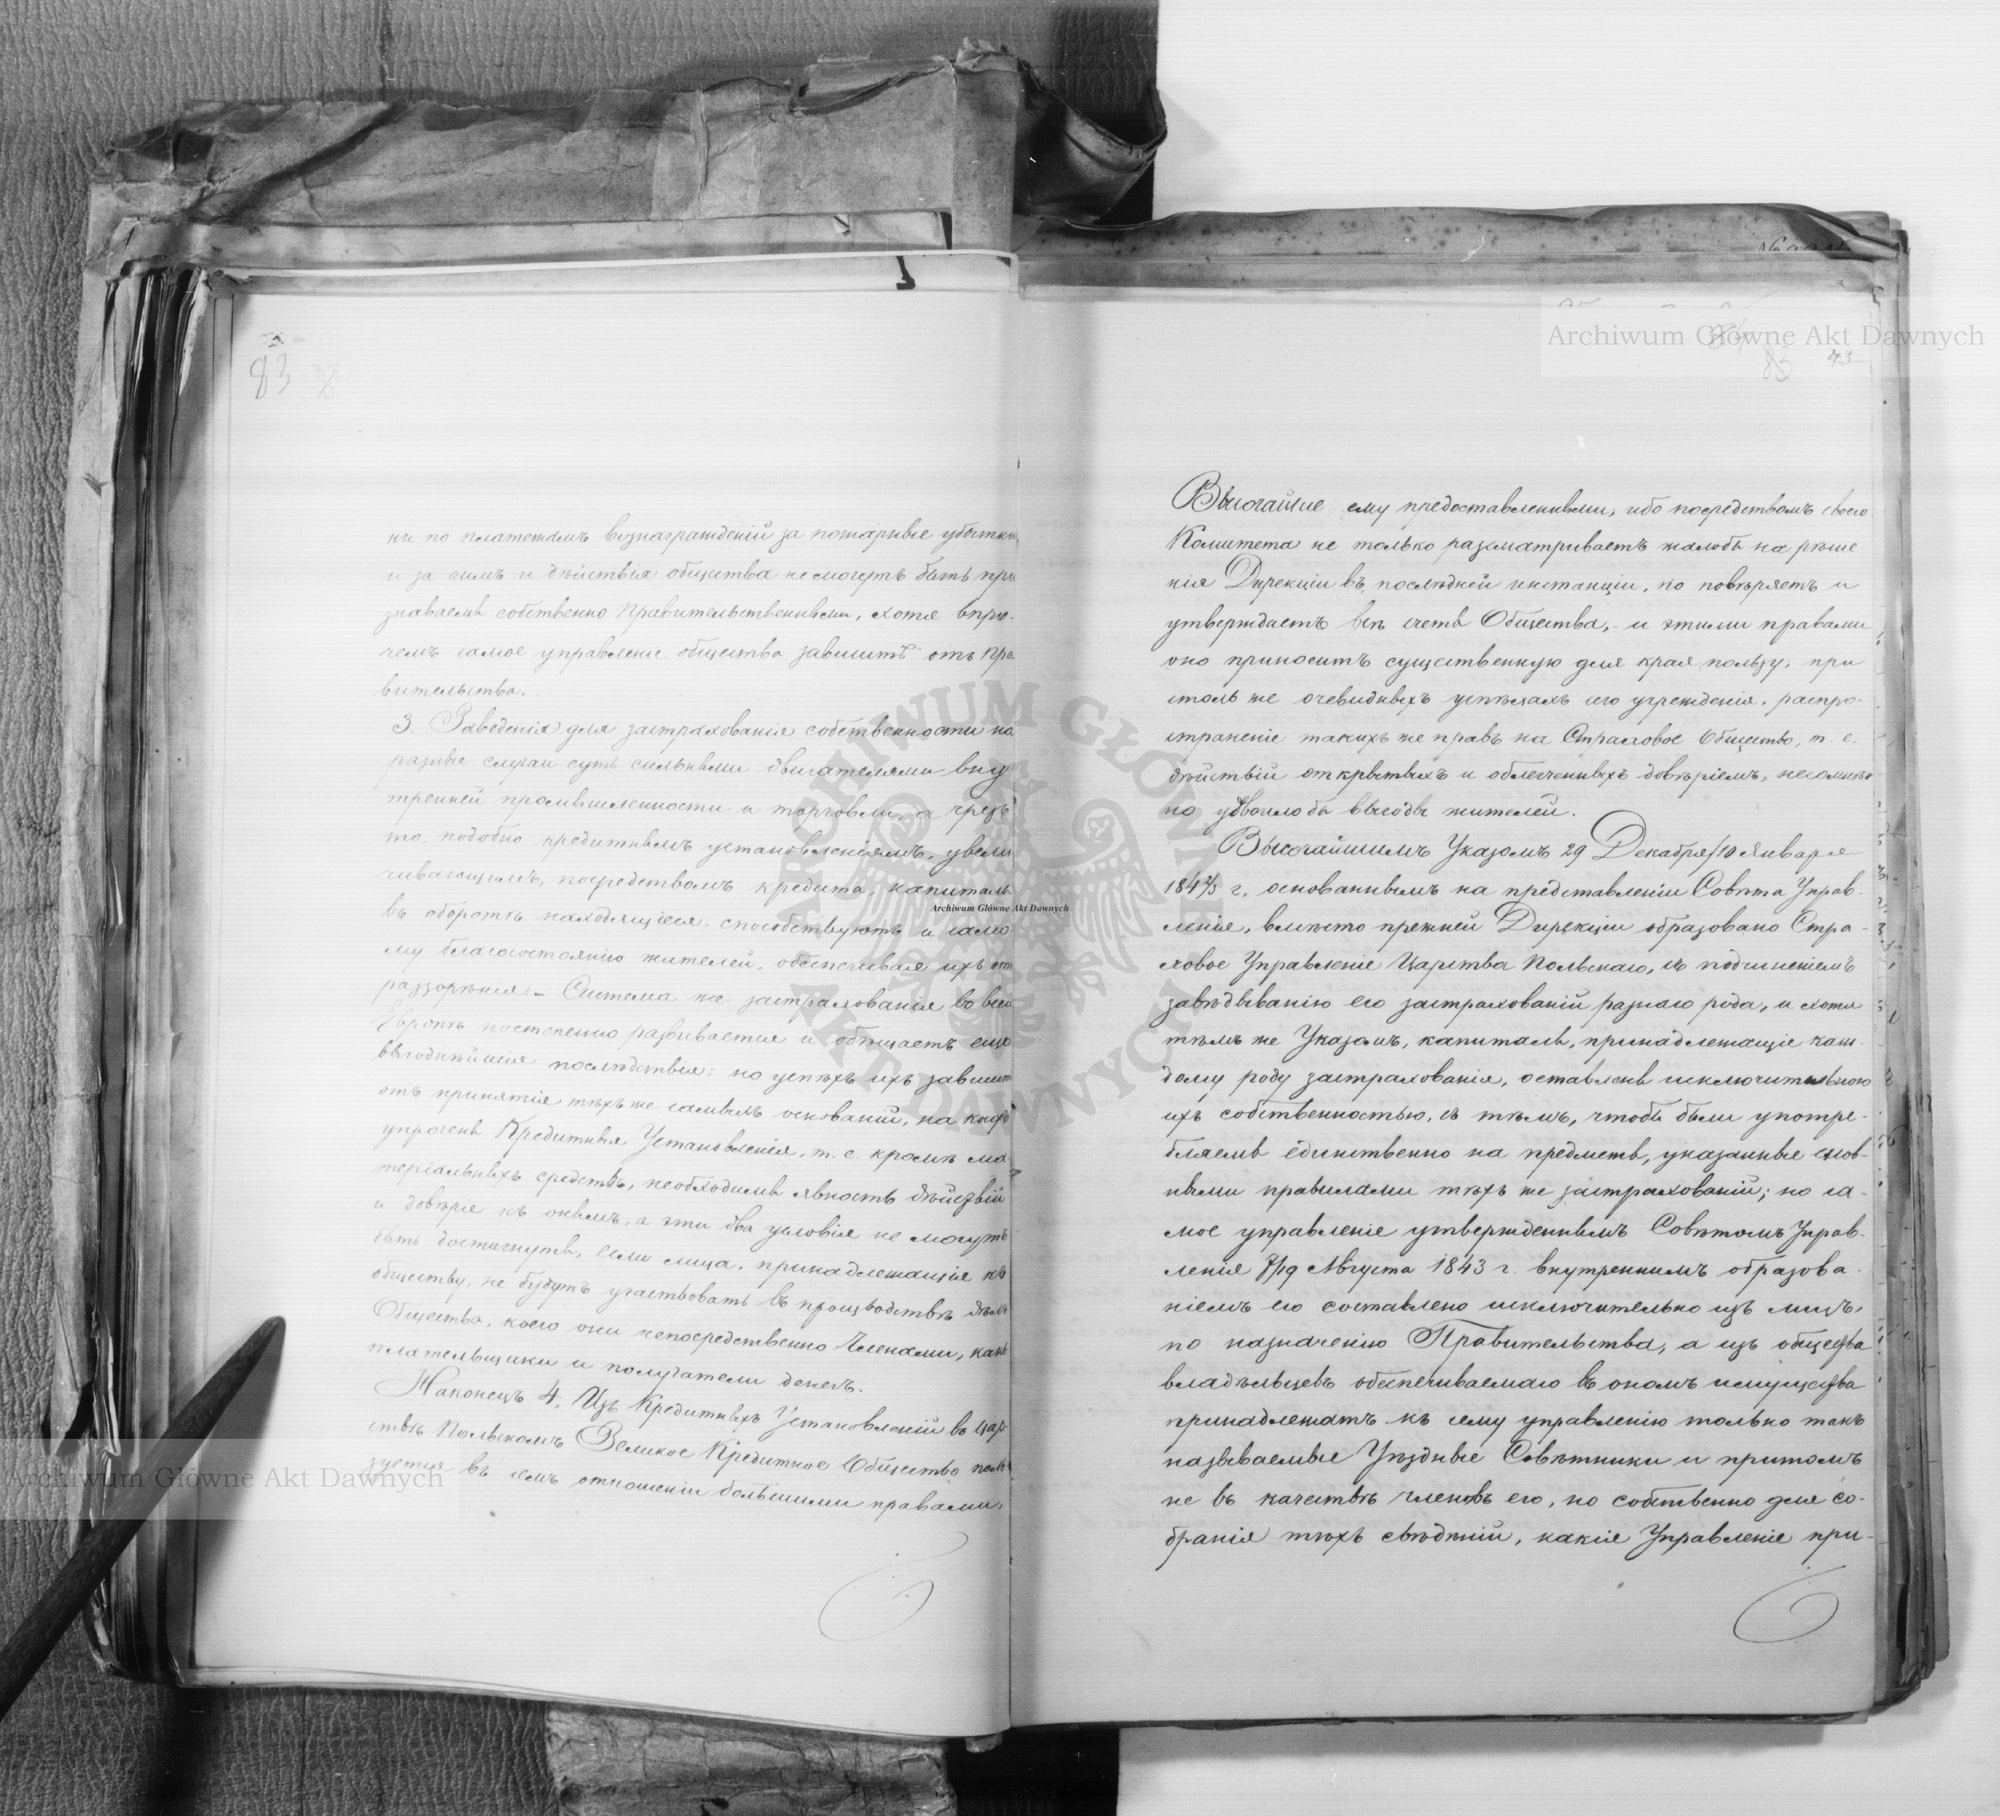 83
ни по платежамъ вознагражденій за пожарные убытки,
и за симъ и дѣйствія общества не могутъ быть при
знаваемы собственно Правительственными, хотя впро-
чемъ самое управленіе общества зависитъ отъ Пра
вительства.
3. Заведенія для застрахованія собственности на
разные случаи суть сильными двигателями вну
тренней промышленности и торговли, а чрезъ
то, подобно кредитнымъ установленіямъ, увели
чивающимъ, посредствомъ кредита, капиталы
въ оборотѣ находящіеся, способствуютъ и само
му благосостоянію жителей, обезпечивая ихъ отъ
раззоренія. – Система же застрахованія во всей
Европѣ постепенно развивается и обѣщаетъ еще
выгоднѣйшія послѣдствія; но успѣхъ ихъ зависитъ
отъ принятія тѣхъ же самыхъ основаній, на коихъ
упрочены Кредитныя Установленія, т. е. кромѣ ма
теріальныхъ средствъ, необходимы явность дѣйствій
и довѣріе къ онымъ, а эти два условія не могутъ
быть достигнуты, если лица, принадлежащія къ
обществу, не будутъ участвовать въ производствѣ дѣлъ
Общества, коего они непосредственно Членами, какъ
плательщики и получатели денегъ.
Наконецъ 4. Изъ Кредитныхъ Установленій въ Цар
ствѣ Польскомъ Земское Кредитное Общество поль
зуется въ семъ отношеніи большими правами,
83
73
Высочайше ему предоставленными, ибо посредствомъ своего
Комитета не только разсматриваетъ жалобы на рѣше
нія Дирекціи въ послѣдней инстанціи, но повѣряетъ и
утверждаетъ всѣ счеты Общества, – и этими правами
оно приноситъ существенную для края пользу; при
столь же очевидныхъ успѣхахъ сего учрежденія, распро-
страненіе такихъ же правъ на Страховое Общество, т. е.
дѣйствій открытыхъ и облеченныхъ довѣріемъ, несомнѣн
но удвоило бы выгоды жителей.
Высочайшимъ Указомъ 29 Декабря/10 Января
184⅔ г. основаннымъ на представленіи Совѣта Управ-
ленія, вмѣсто прежней Дирекціи образовано Стра-
ховое Управленіе Царства Польскаго, съ подчиненіемъ
завѣдыванію его застрахованій разнаго рода, и хотя
тѣмъ же Указомъ, капиталы, принадлежащіе каж-
дому роду застрахованія, оставлены исключительною
ихъ собственностью, съ тѣмъ, чтобы были употре-
бляемы единственно на предметы, указанные основ-
ными правилами тѣхъ же застрахованій; но са-
мое управленіе утвержденнымъ Совѣтомъ Управ-
ленія 7/19 Августа 1843 г. внутреннимъ образова-
ніемъ его составлено исключительно изъ лицъ,
по назначенію Правительства, а изъ общества
владѣльцевъ обезпечиваемаго въ ономъ имущества
принадлежатъ къ сему управленію только такъ
называемые Уѣздные Совѣтники и притомъ
не въ качествѣ членовъ его, но собственно для со-
бранія тѣхъ свѣдѣній, какія Управленіе при-
Archiwum Główne Akt Dawnych
Archiwum Główne Akt Dawnych
Archiwum Główne Akt Dawnych
ARCHIWUM GŁÓWNE AKT DAWNYCH